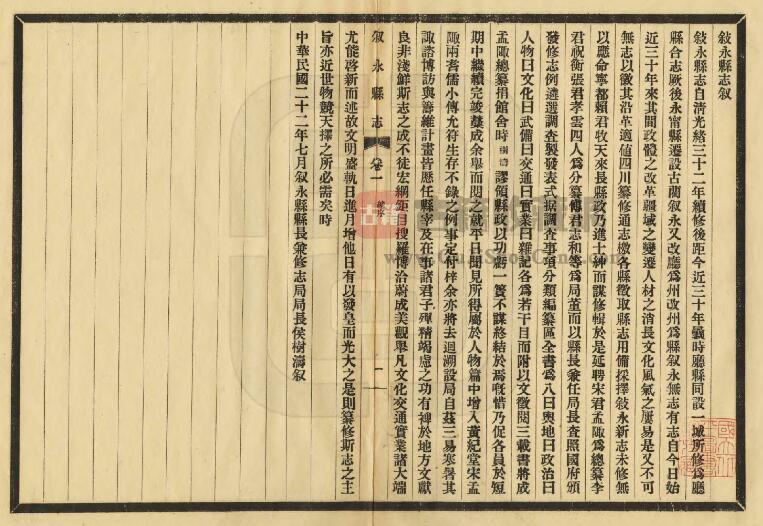 敍永縣志敘
敍永縣志自淸光緒三十二年續修後距今近三十年曩時廳縣同設一城所修爲廳
縣合志厥後永甯縣遷設古藺敘永又改廳爲州改州爲縣敘永無志有志自今日始
近三十年來其間政體之改革疆域之變遷人材之消長文化風氣之屢易是又不可
無志以徵其沿革適値四川纂修通志檄各縣徵取縣志用備採擇敍永新志未修無
以應命寧都賴君牧天來長縣政乃進士紳而謀修輯於是延聘宋君孟陬爲總纂李
君祝衡張君孝雲四人爲分纂傅君志和等爲局董而以縣長兼任局長查照國府頒
發修志例遴選調查製發表式据調查事項分類編纂區全書爲八曰輿地曰政治曰
人物曰文化曰武備曰交通曰實業曰雜記各爲若干目而附以文徵閱三載書將成
孟陬總纂捐館舍時樹濤謬領縣政以功虧一簣不謀終結於焉嘅惜乃促各員於短
期中繼續完竣藁成余舉而閱之就平日聞見所得屬於人物篇中增入黃紀堂宋孟
陬兩耆儒小傳允符生存不錄之例事定付梓余亦將去迴溯設局自玆三易寒暑其
諏諮博訪與籌維計畫皆歷任縣宰及在事諸君子殫精竭慮之功有裨於地方文獻
良非淺鮮斯志之成不徒宏綱鉅目搜羅博洽蔚成美觀舉凡文化交通實業諸大端
敍永縣志 卷一 敍序 一
尤能啓新而述故文明盛軌日進月增他日有以發皇而光大之是則纂修斯志之主
旨亦近世物競天擇之所必需矣時
中華民國二十二年七月敘永縣縣長兼修志局局長侯樹濤敘
古籍